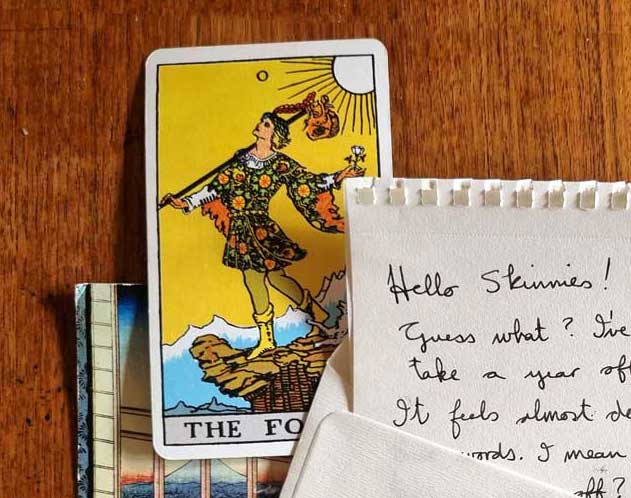 0
THE FO
Hello Skinnies!
Guess what? I've
take a year off
It feels almost de
words. I mean
off?